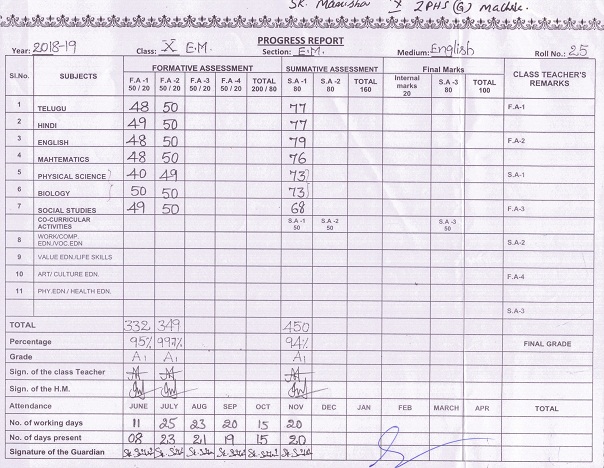 SK. Manisha X ZPHS (G) Machile.
PROGRESS REPORT
Year: 2018-19 Class: X E.M. Section: E.M. Medium: English Roll No.: 25
Sl.No. SUBJECTS FORMATIVE ASSESSMENT SUMMATIVE ASSESSMENT Final Marks CLASS TEACHER'S REMARKS
F.A -1 50 / 20 F.A -2 50 / 20 F.A -3 50 / 20 F.A -4 50 / 20 TOTAL 200 / 80 S.A -1 80 S.A -2 80 TOTAL 160 Internal marks 20 S.A -3 80 TOTAL 100
1 TELUGU 48 50 77 F.A-1
2 HINDI 49 50 77
3 ENGLISH 48 50 79 F.A-2
4 MAHTEMATICS 48 50 76
5 PHYSICAL SCIENCE 40 49 73 S.A-1
6 BIOLOGY 50 50 73
7 SOCIAL STUDIES 49 50 68 F.A-3
CO-CURRICULAR ACTIVITIES S.A -1 50 S.A -2 50 S.A -3 50
8 WORK/COMP. EDN./VOC.EDN S.A-2
9 VALUE EDN./LIFE SKILLS
10 ART/ CULTURE EDN. F.A-4
11 PHY.EDN / HEALTH EDN.
S.A-3
TOTAL 332 349 450
Percentage 95% 99% 94% FINAL GRADE
Grade A1 A1 A1
Sign. of the class Teacher
Sign. of the H.M.
Attendance JUNE JULY AUG SEP OCT NOV DEC JAN FEB MARCH APR TOTAL
No. of working days 11 25 23 20 15 20
No. of days present 08 23 21 19 15 20
Signature of the Guardian